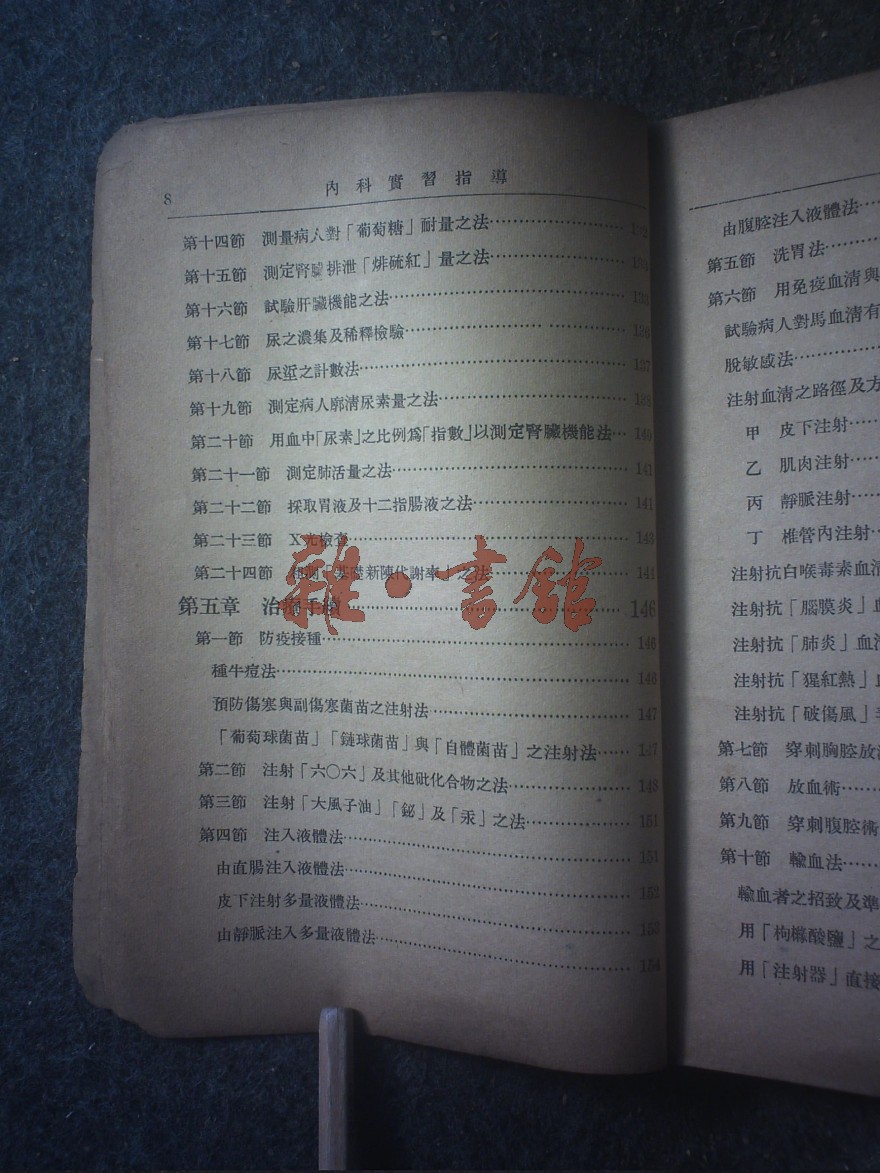 8
內科實習指導
第十四節 測量病人對「葡萄糖」耐量之法
第十五節 測定腎臟排泄「㷌硫紅」量之法
第十六節 試驗肝臟機能之法 133
第十七節 尿之濃集及稀釋檢驗 136
第十八節 尿沉之計數法 137
第十九節 測定病人廓清尿素量之法 138
第二十節 用血中「尿素」之比例爲「指數」以測定腎臟機能法 140
第二十一節 測定肺活量之法 141
第二十二節 採取胃液及十二指腸液之法 141
第二十三節 X光檢查 143
第二十四節 「基礎新陳代謝率」之法 144
第五章 治療手續 146
第一節 防疫接種 146
種牛痘法 146
預防傷寒與副傷寒菌苗之注射法 147
「葡萄球菌苗」「鏈球菌苗」與「自體菌苗」之注射法 147
第二節 注射「六〇六」及其他砒化合物之法 148
第三節 注射「大風子油」「鉍」及「汞」之法 151
第四節 注入液體法 151
由直腸注入液體法 152
皮下注射多量液體法 153
由靜脈注入多量液體法 154
由腹腔注入液體法
第五節 洗胃法
第六節 用免疫血清與
試驗病人對馬血清有
脫敏感法
注射血清之路徑及方
甲 皮下注射
乙 肌肉注射
丙 靜脈注射
丁 椎管內注射
注射抗白喉毒素血清
注射抗「腦膜炎」血
注射抗「肺炎」血清
注射抗「猩紅熱」
注射抗「破傷風」
第七節 穿刺胸腔放
第八節 放血術
第九節 穿刺腹腔術
第十節 輸血法
輸血者之招致及準
用「枸櫞酸鹽」之
用「注射器」直接
雜·書館